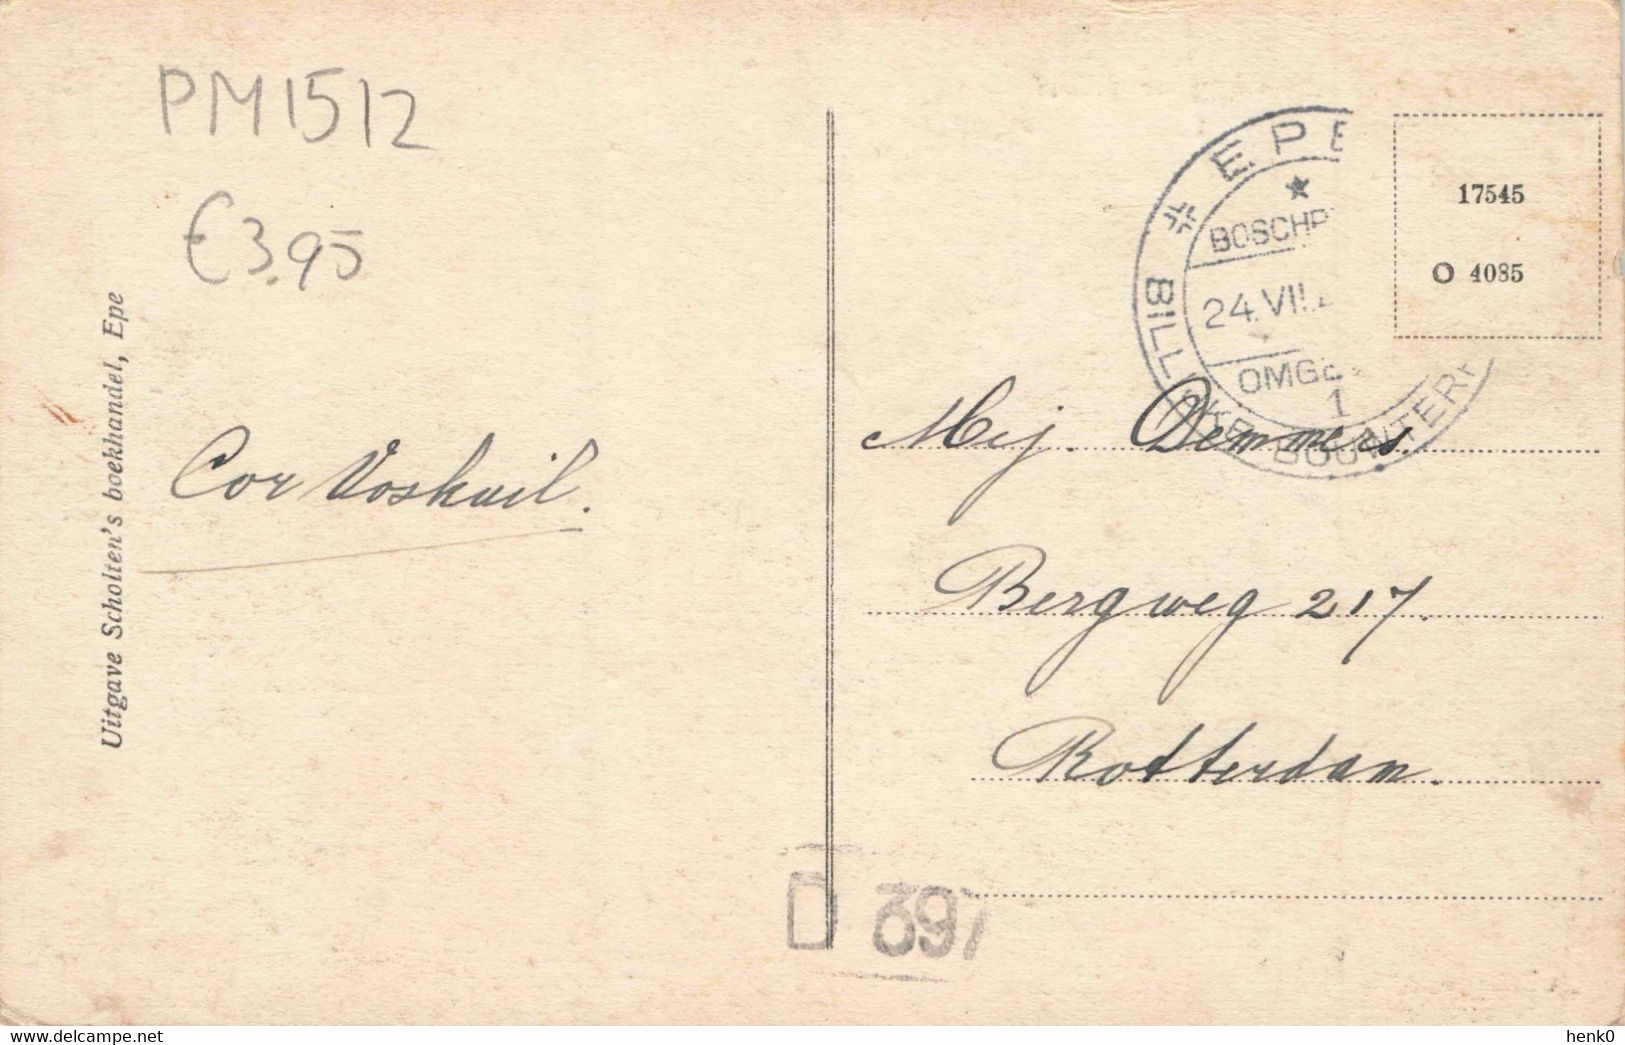 PM1512
€3.95
Uitgave Scholten's boekhandel, Epe
Cor Voskuil.
EPE
BOSCHR
24.VII.
OMGE
1
17545
O 4085
Mej. Demmers.
Bergweg 217.
Rotterdam.
D 397
delcampe.net
henk0